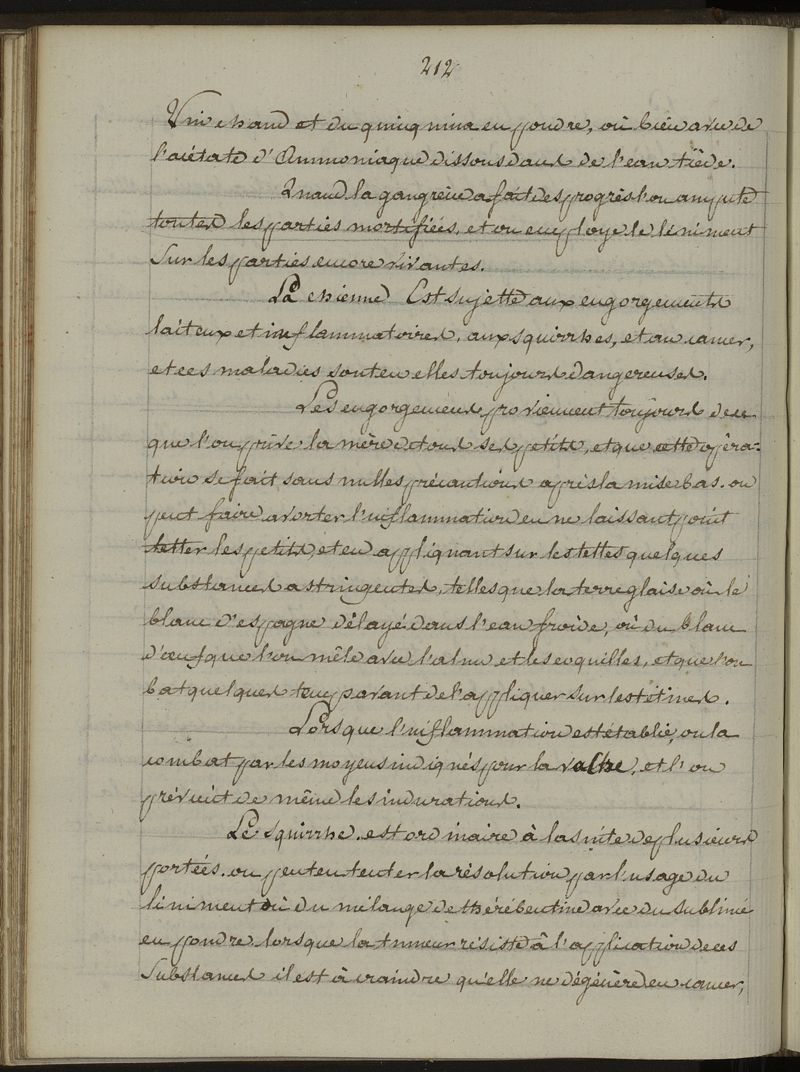 212
Vin chaud et du quinquina en poudre, où bien avec de
l'acétate d'Ammoniaque dissous dans de l'eau tiède.
Quand la gangrène a fait des progrès l'on ampute
toutes les parties mortifiées, et on employe le liniment
Sur les parties encore vivantes.
La chienne Est sujette aux engorgements
laiteux et inflammatoires, aux squirrhes, et au cancer,
et ces maladies sont en elles toujours dangereuses.
Les engorgemens proviennent toujours de ce
que l'on prive la mère de tous ses petits, et que cette opéra-
tion se fait sans nulles précautions après la mise bas. on
peut faire avorter l'inflammation en ne laissant point
tetter les petits, et en appliquant sur les tettes quelques
substances astringentes, telles que la terre glaise où le
blanc d'espagne délayé dans l'eau froide, où du blanc
d'œuf que l'on mêle avec l'alun et les coquilles, et que l'on
bat quelques temps avant de l'appliquer sur les tétines.
Lorsque l'inflammation est établie, on la
combat par les moyens indiqués pour la vache, et l'on
prévient de même les indurations.
Le squirrhe est ordinaire à la suite de plusieurs
portées. on peut en tenter la résolution par l'usage du
liniment où du mélange de thérébentine avec du sublimé
en poudre, lorsque la tumeur résiste à l'application de ces
Substances il est à craindre qu'elle ne dégénère en cancer,